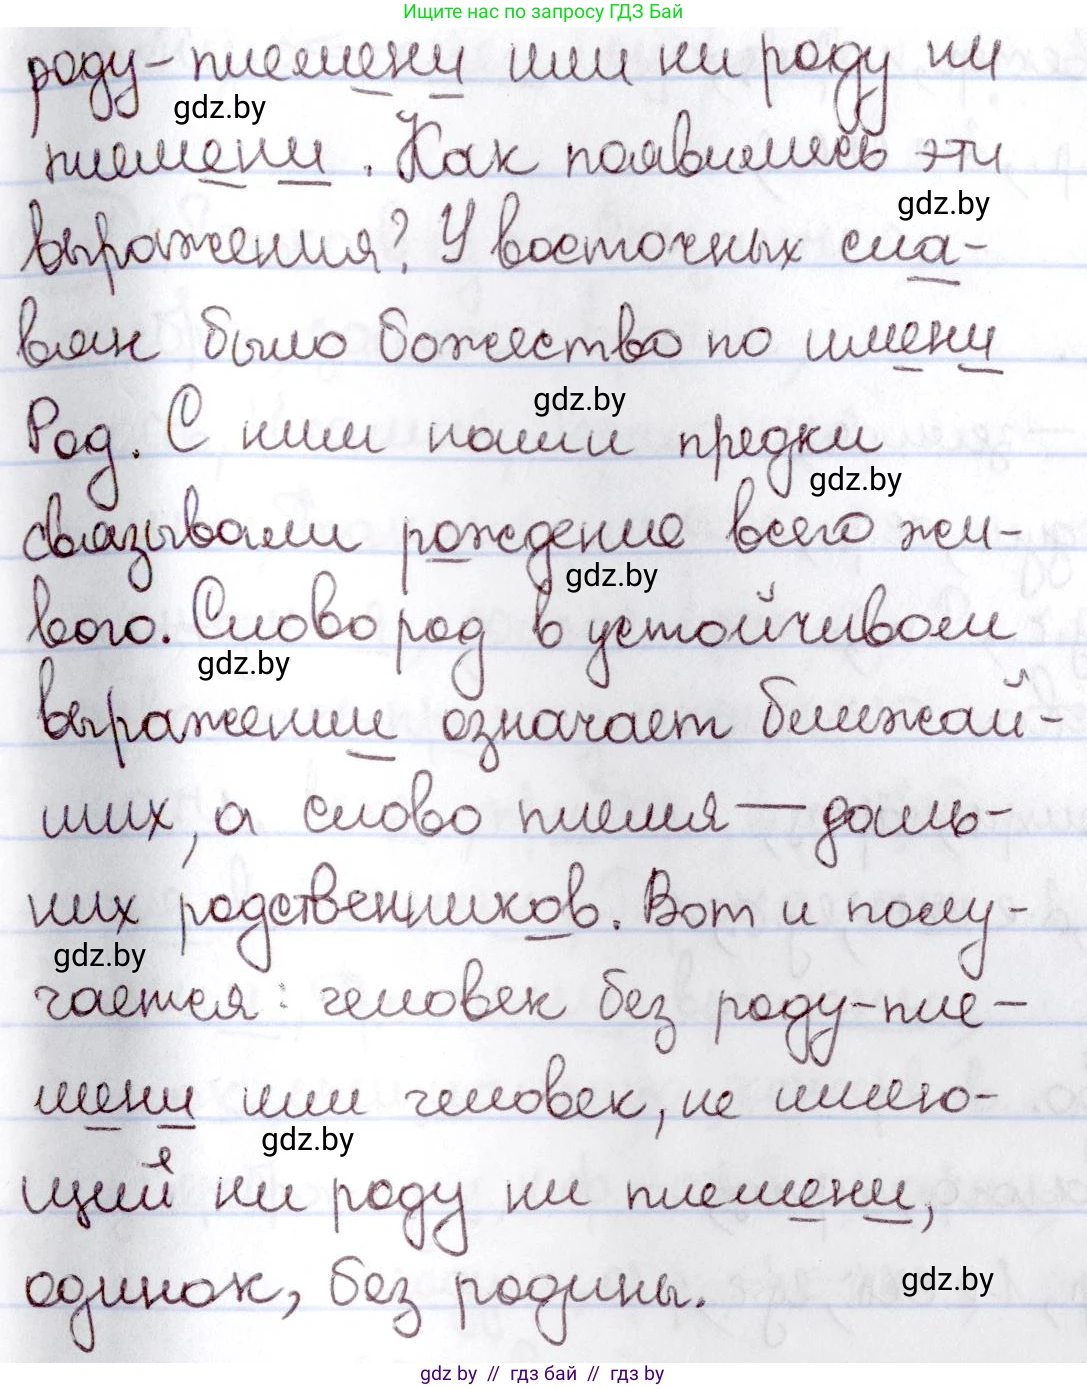 Ищите нас по запросу ГДЗ Бай
роду-племени или ни роду ни
gdz.by
племени. Как появились эти
gdz.by
выражения? У восточных сла-
вян было божество по имени
gdz.by
Род. С ним наши предки
gdz.by
связывали рождение всего жи-
gdz.by
вого. Слово род в устойчивом
gdz.by
выражении означает ближай-
ших, а слово племя — даль-
них родственников. Вот и полу-
gdz.by
чается: человек без роду-пле-
мени или человек, не имею-
gdz.by
щий ни роду ни племени,
одинок, без родины.
gdz.by
gdz by // гдз бай // гдз by